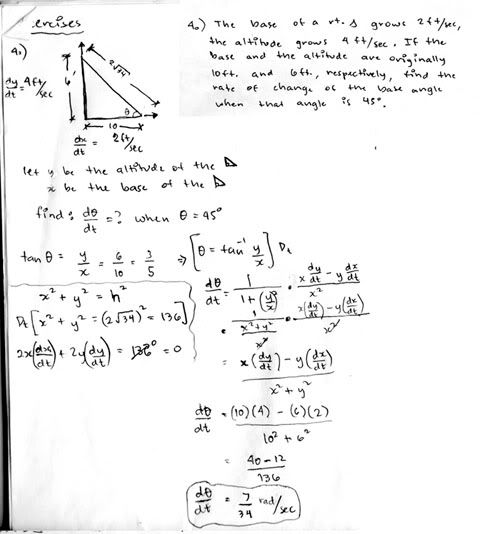 ercises
4.)
dy/dt = 4 ft/sec
6'
2√34
θ
10
dx/dt = 2 ft/sec
4.) The base of a rt. Δ grows 2 ft/sec,
the altitude grows 4 ft/sec. If the
base and the altitude are originally
10ft. and 6ft., respectively, find the
rate of change of the base angle
when that angle is 45°.
let y be the altitude of the ⊿
x be the base of the ⊿
find: dθ/dt = ? when θ = 45°
tan θ = y/x = 6/10 = 3/5 ⇒ [θ = tan⁻¹ y/x] Dt
x² + y² = h²
Dt [x² + y² = (2√34)² = 136]
2x(dx/dt) + 2y(dy/dt) = 136⁰ = 0
dθ/dt = 1/(1 + (y/x)²) · (x dy/dt - y dx/dt)/x²
= 1/((x² + y²)/x²) · (x(dy/dt) - y(dx/dt))/x²
= (x(dy/dt) - y(dx/dt))/(x² + y²)
dθ/dt = ((10)(4) - (6)(2))/(10² + 6²)
= (40 - 12)/136
dθ/dt = 7/34 rad/sec